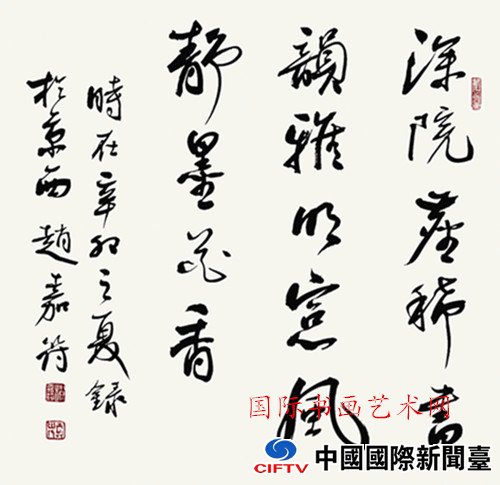 深院塵稀書
韻雅明窓風
静墨花香
時在辛卯之夏錄
於京西趙嘉符
国际书画艺术网
CIFTV 中國國際新聞臺